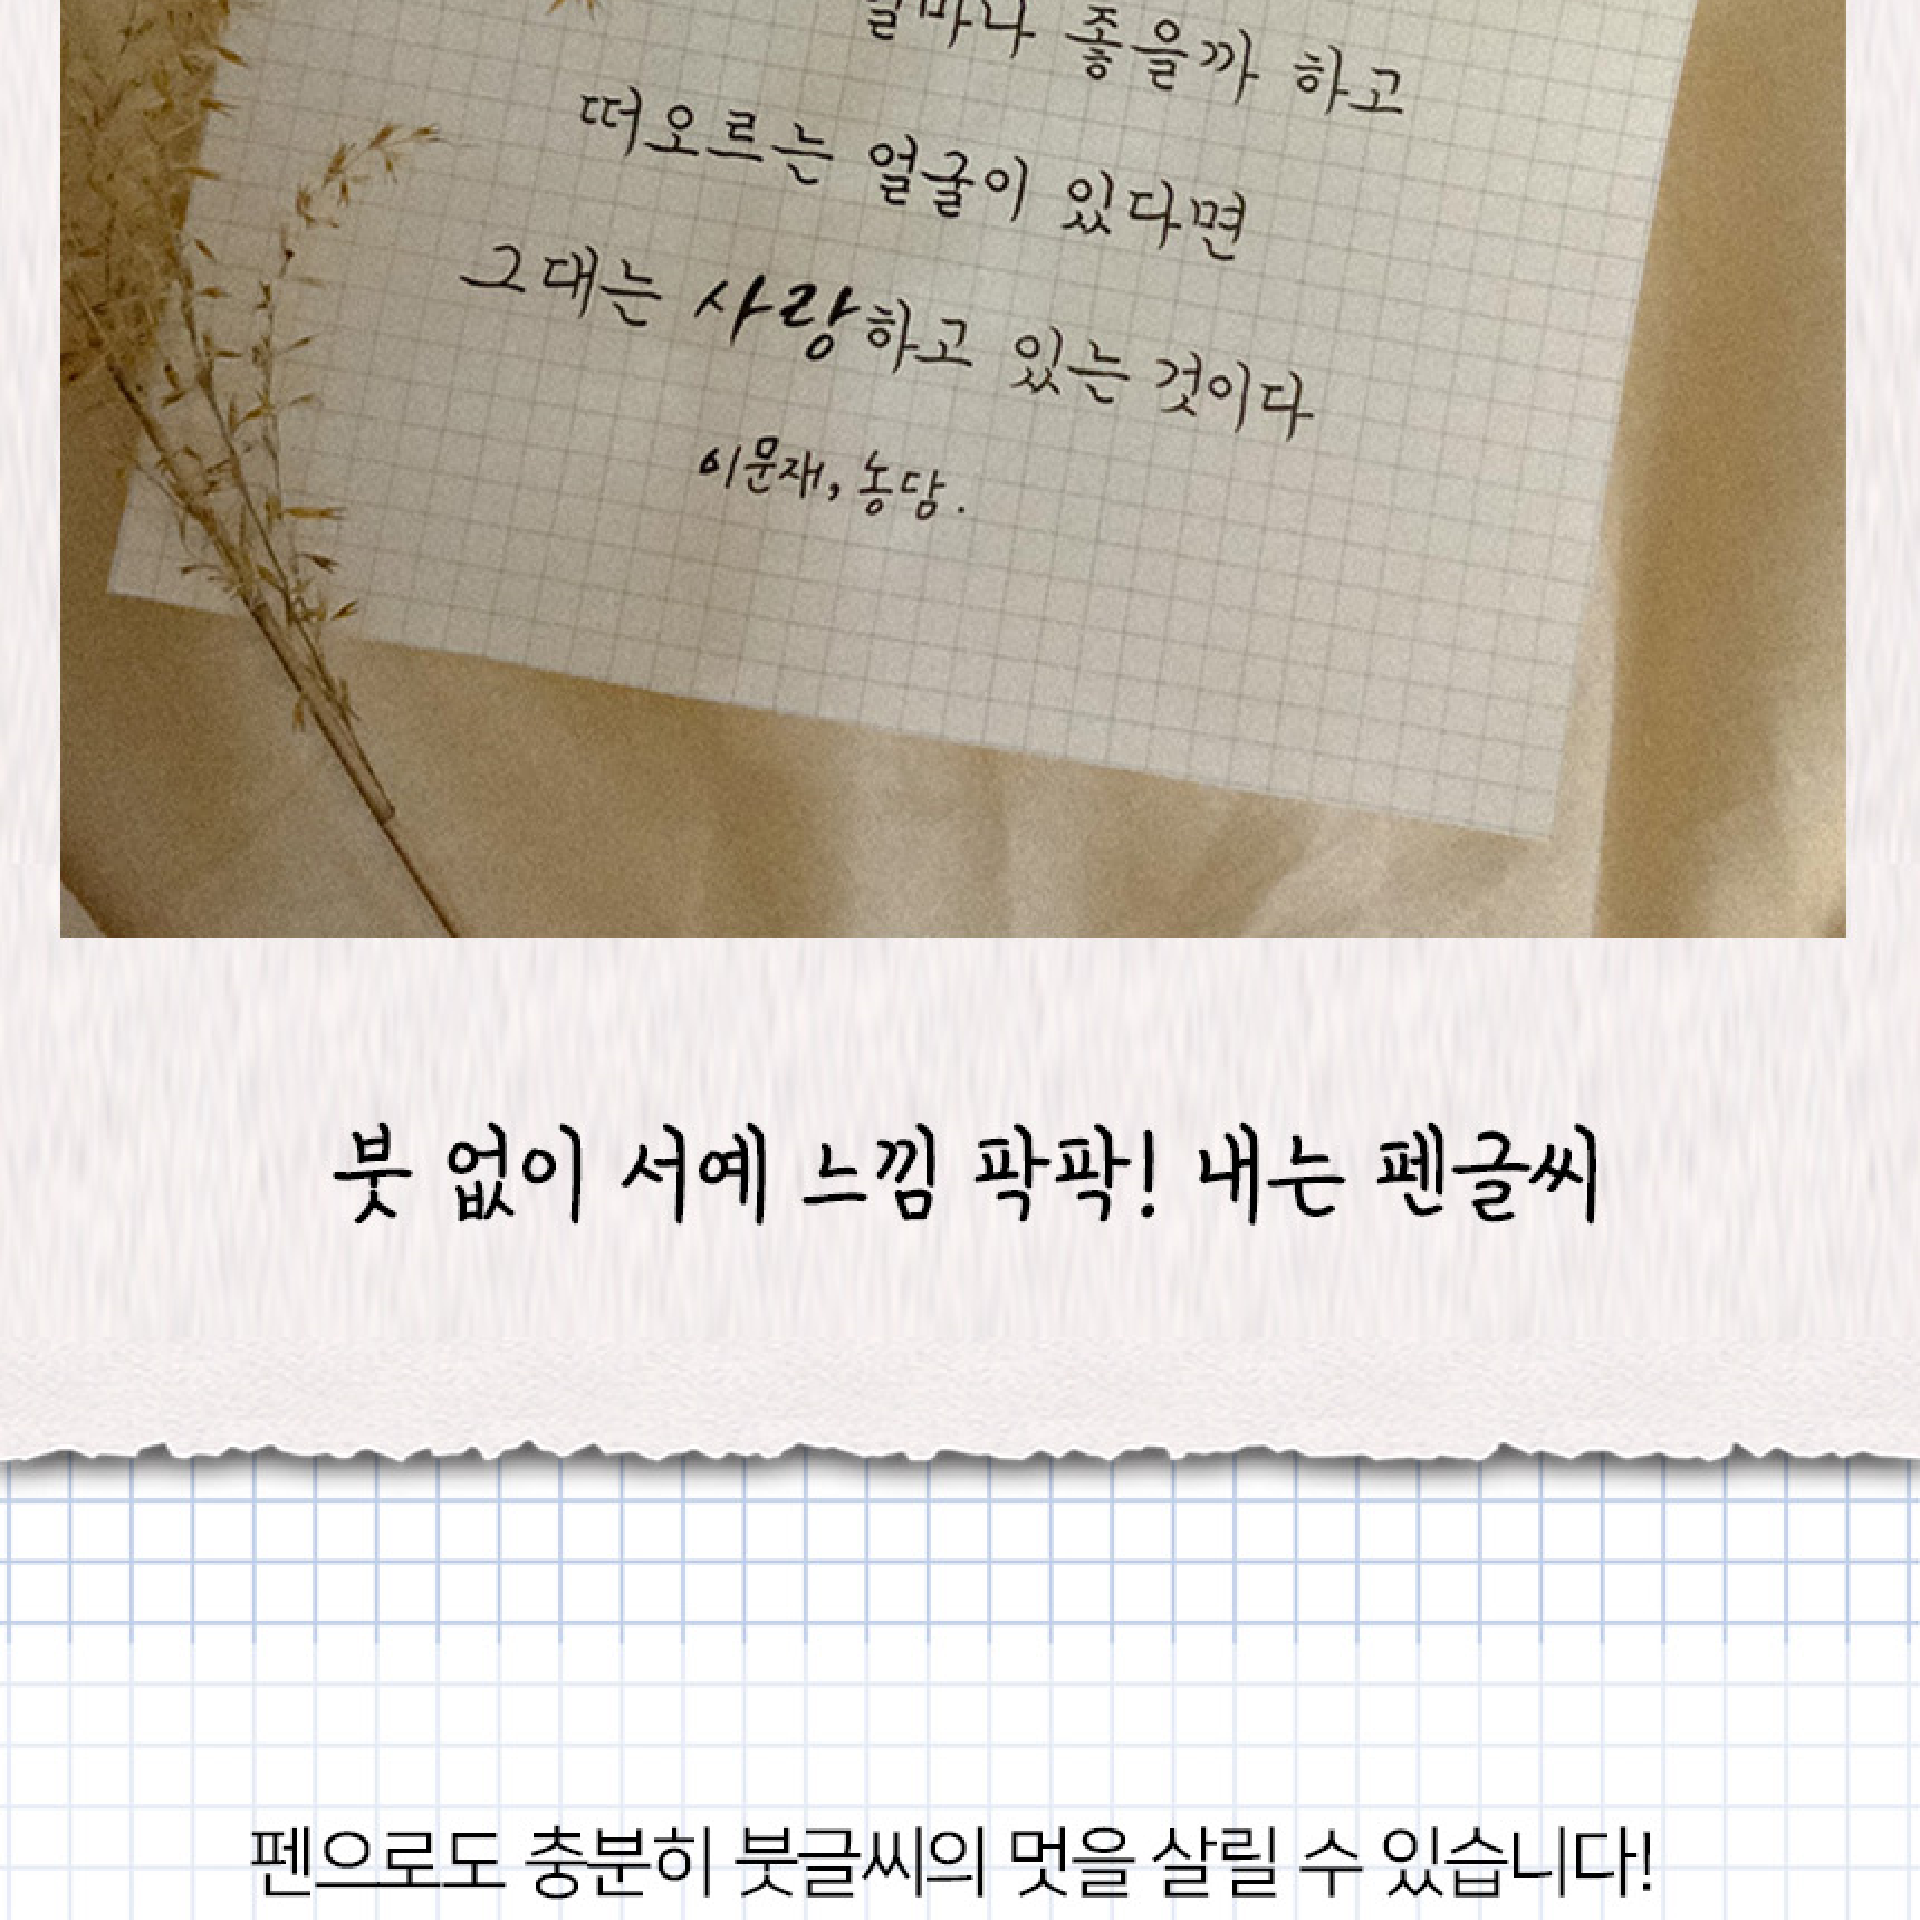 얼마나 좋을까 하고
떠오르는 얼굴이 있다면
그대는 사랑하고 있는 것이다
이문재, 농담.
붓 없이 서예 느낌 팍팍! 내는 펜글씨
펜으로도 충분히 붓글씨의 멋을 살릴 수 있습니다!